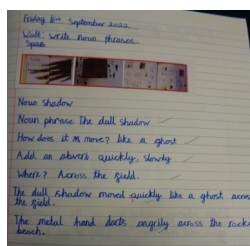 Friday 2nd September 2022
Walt: write noun phrases.
Spook
Noun shadow
Noun phrase The dull shadow
How does it m move? like a ghost
Add an abverb quickly, slowly
Where? Across the field.
The dull shadow moved quickly like a ghost across
the field.
The metal hand darts angrily across the rocky
beach.